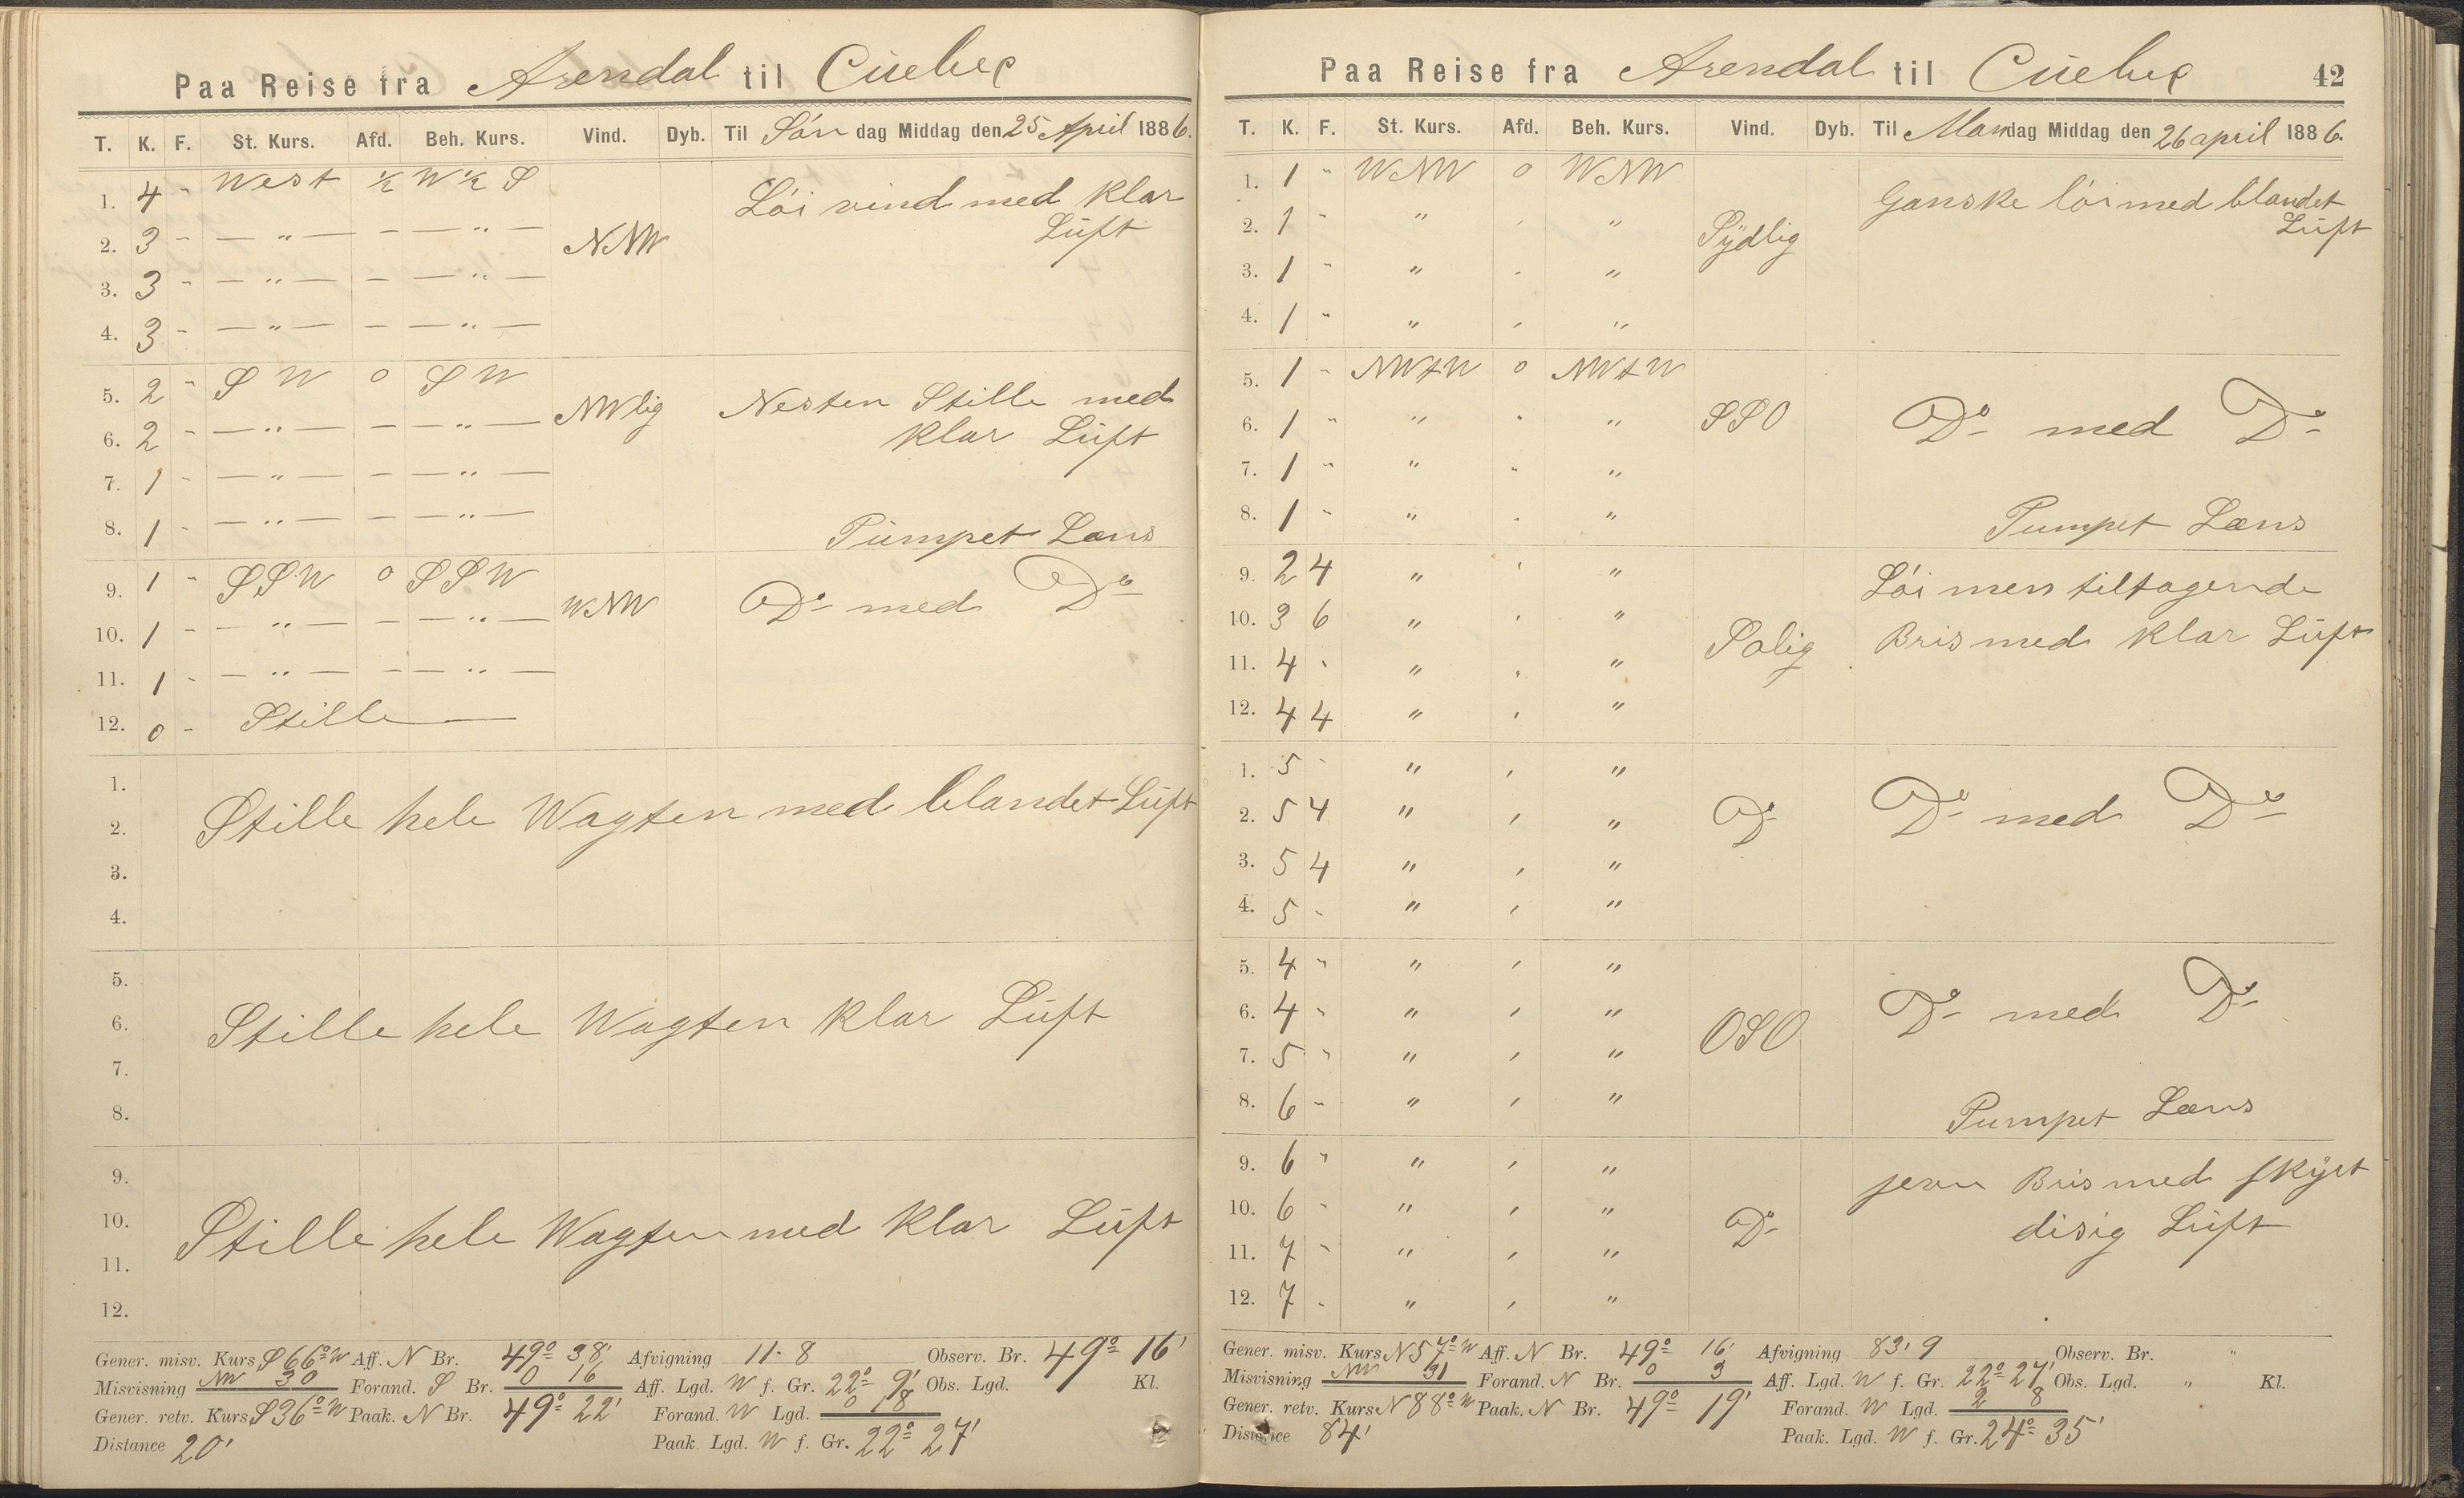 Paa Reise fra Arendal til Cuebec
T. K. F. St. Kurs. Afd. Beh. Kurs. Vind. Dyb. Til Søndag Middag den 25 April 1886.
1. 4 " West ½ W½S Løi vind med klar
Lüft
2. 3 " — " — — — " — NNW
3. 3 " — " — — — " —
4. 3 " — " — — — " —
5. 2 " SW 0 SW Nesten Stille med
6. 2 " — " — — — " — NWlig klar Lüft
7. 1 " — " — — — " —
8. 1 " — " — — — " — Pümpet Læns
9. 1 " SSW 0 SSW WNW Do med Do
10. 1 " — " — — — " —
11. 1 " — " — — — " —
12. 0 " Stille —
1.
2. Stille hele Wagten med blandet Lüft
3.
4.
5.
6. Stille hele Wagten klar Lüft
7.
8.
9.
10. Stille hele Wagten med klar Lüft
11.
12.
Gener. misv. Kurs S66°W Aff. N Br. 49° 38' Afvigning 11.8 Observ. Br. 49° 16'
Misvisning NW 30 Forand. S Br. 0 16 Aff. Lgd. W f. Gr. 22° 9' Obs. Lgd. Kl.
Gener. retv. Kurs S36°W Paak. N Br. 49° 22' Forand. W Lgd. 0 18
Distance 20' Paak. Lgd. W f. Gr. 22° 27'
Paa Reise fra Arendal til Cuebec 42
T. K. F. St. Kurs. Afd. Beh. Kurs. Vind. Dyb. Til Mandag Middag den 26 april 1886.
1. 1 " WNW 0 WNW Ganske løi med blandet
Lüft
2. 1 " " " " Sÿdlig
3. 1 " " " "
4. 1 " " " "
5. 1 " NWtW 0 NWtW
6. 1 " " " " SSO Do med Do
7. 1 " " " "
8. 1 " " " " Pumpet Læns
9. 2 4 " " " Løi men tiltagende
10. 3 6 " " " Solig Bris med klar Lüft
11. 4 " " " "
12. 4 4 " " "
1. 5 " " " "
2. 5 4 " " " Do Do med Do
3. 5 4 " " "
4. 5 " " " "
5. 4 " " " "
6. 4 " " " " OSO Do med Do
7. 5 " " " "
8. 6 " " " " Pumpet Læns
9. 6 " " " " jevn Bris med skÿet
10. 6 " " " " Do disig Lüft
11. 7 " " " "
12. 7 " " " "
Gener. misv. Kurs N57°W Aff. N Br. 49° 16' Afvigning 83,9 Observ. Br. "
Misvisning NW 31 Forand. N Br. 0 3 Aff. Lgd. W f. Gr. 22° 27' Obs. Lgd. " Kl.
Gener. retv. Kurs N88°W Paak. N Br. 49° 19' Forand. W Lgd. 2 8
Distance 84' Paak. Lgd. W f. Gr. 24° 35'